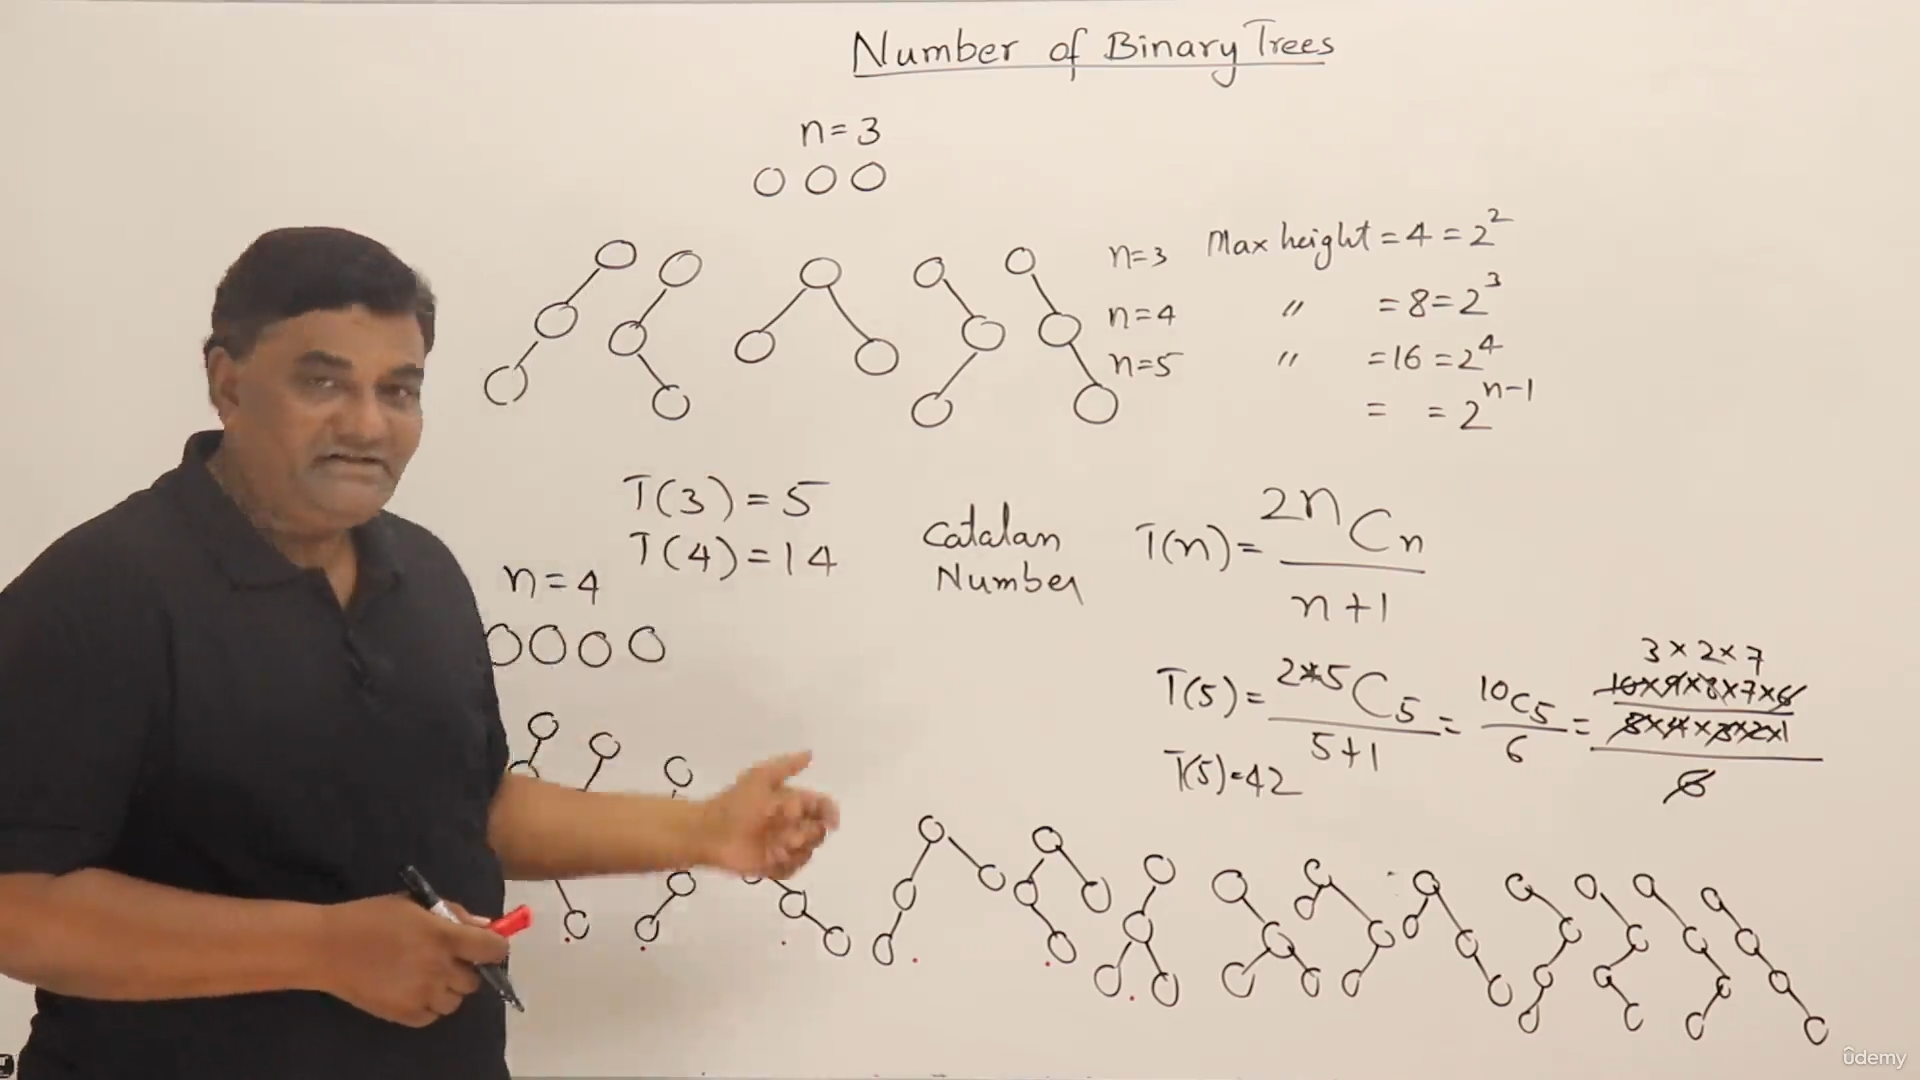 Number of Binary Trees
n=3
n=3 Max height = 4 = 2^2
n=4 〃 = 8 = 2^3
n=5 〃 = 16 = 2^4
= = 2^n-1
T(3) = 5
T(4) = 14
Catalan
Number
T(n) = 2nCn
n+1
n=4
3×2×7
T(5) = 2*5C5 = 10C5 = 10×9×8×7×6
5+1 6 5×4×3×2×1
6
T(5)=42
ûdemy